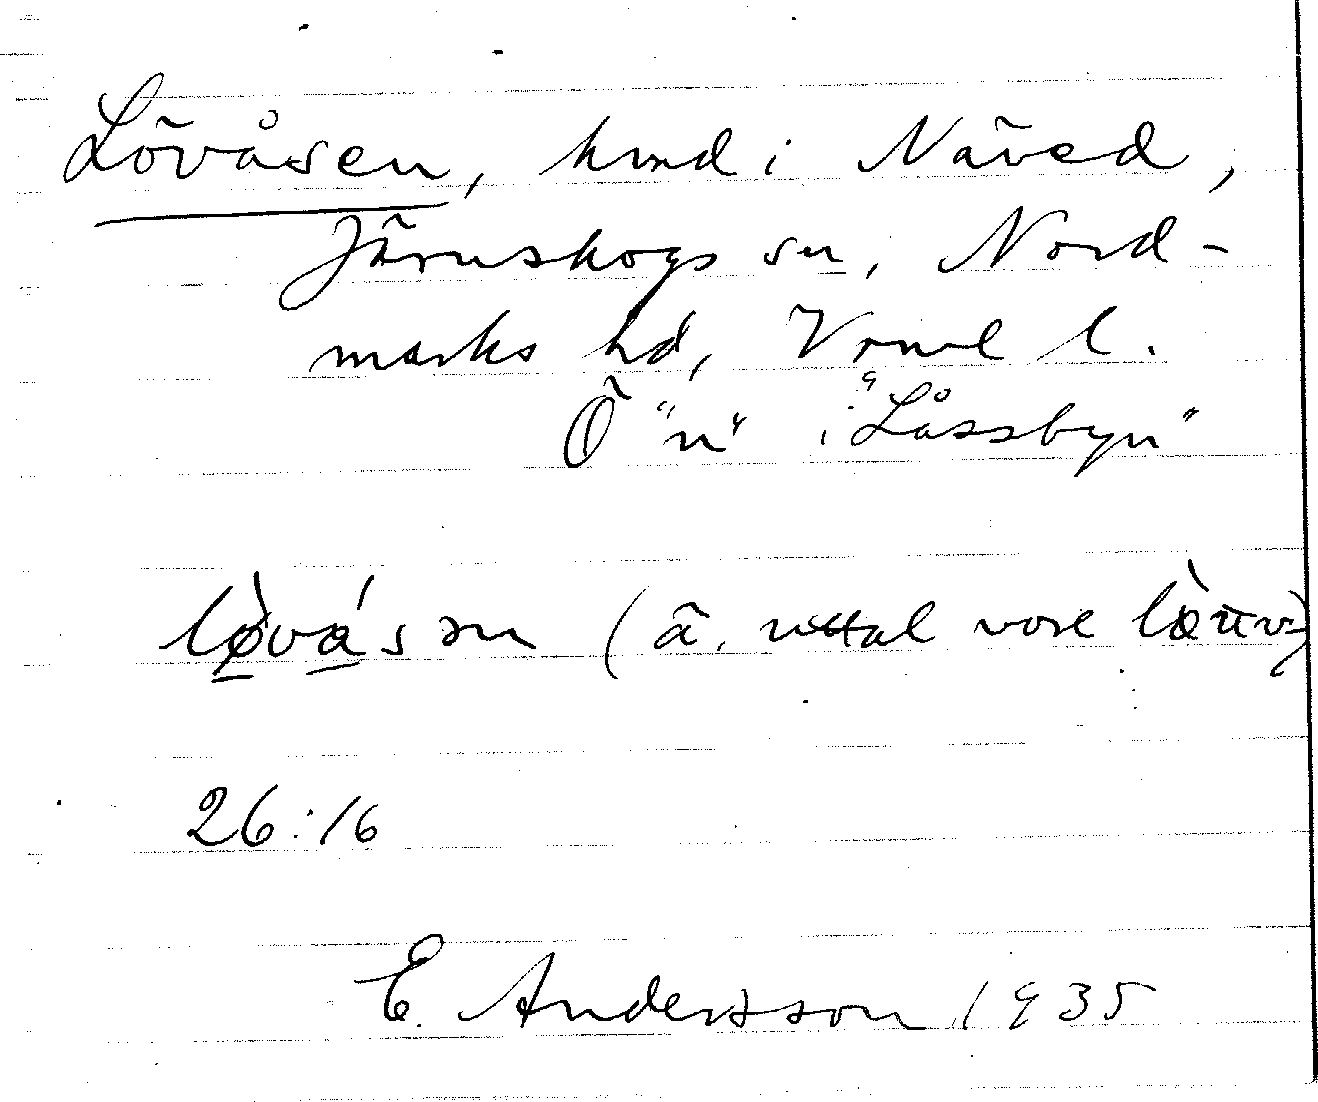 Lövåsen, hmd i Näved,
Järnskogs sn, Nord-
marks hd, Vrml l.
Ö "n" i "Låssbyn"
lø̀vásn (ä. uttal vore
26:16
E. Andersson 1935